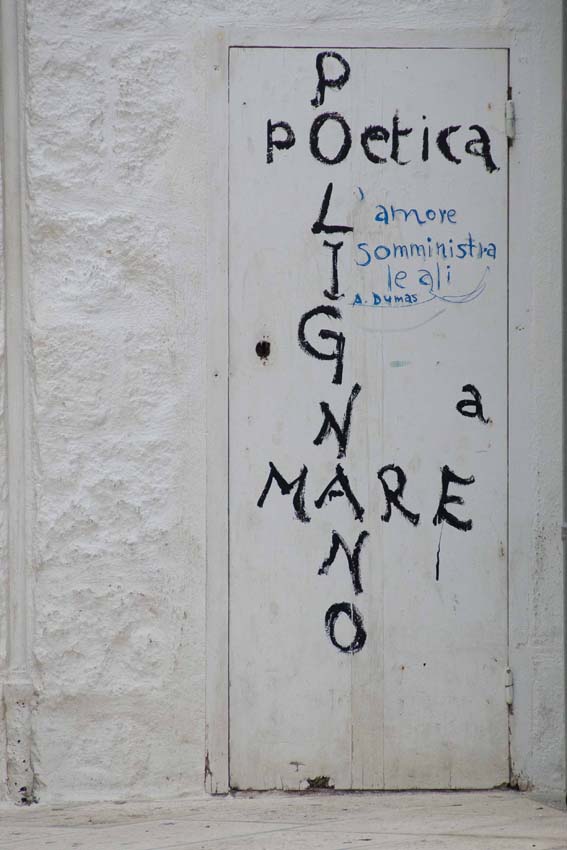 POLIGNANO
pOetica
L'amore
somministra
le ali
A. Dumas
a
MARE